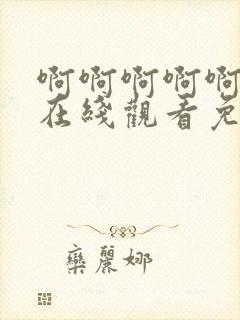 啊啊啊啊啊
在綫觀看免
欒麗娜